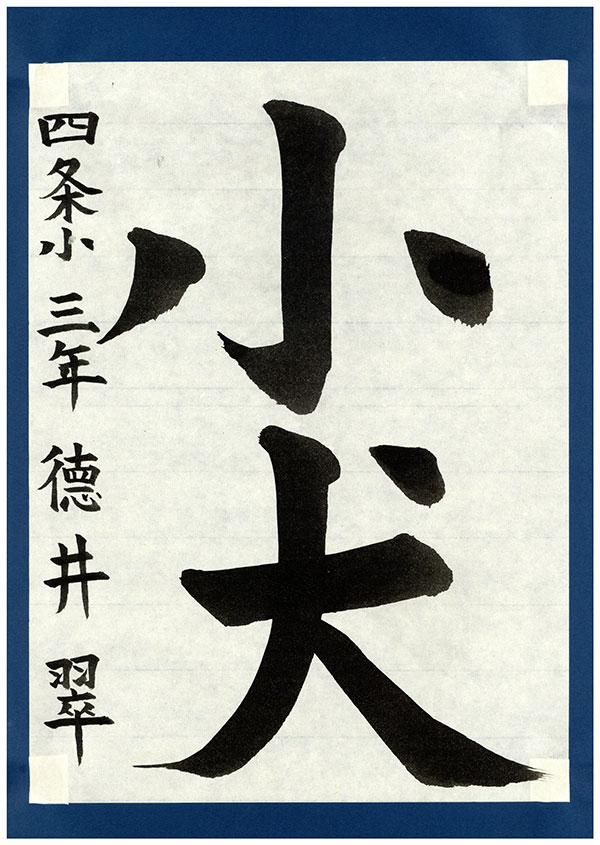 小犬
四条小 三年 徳井 翠